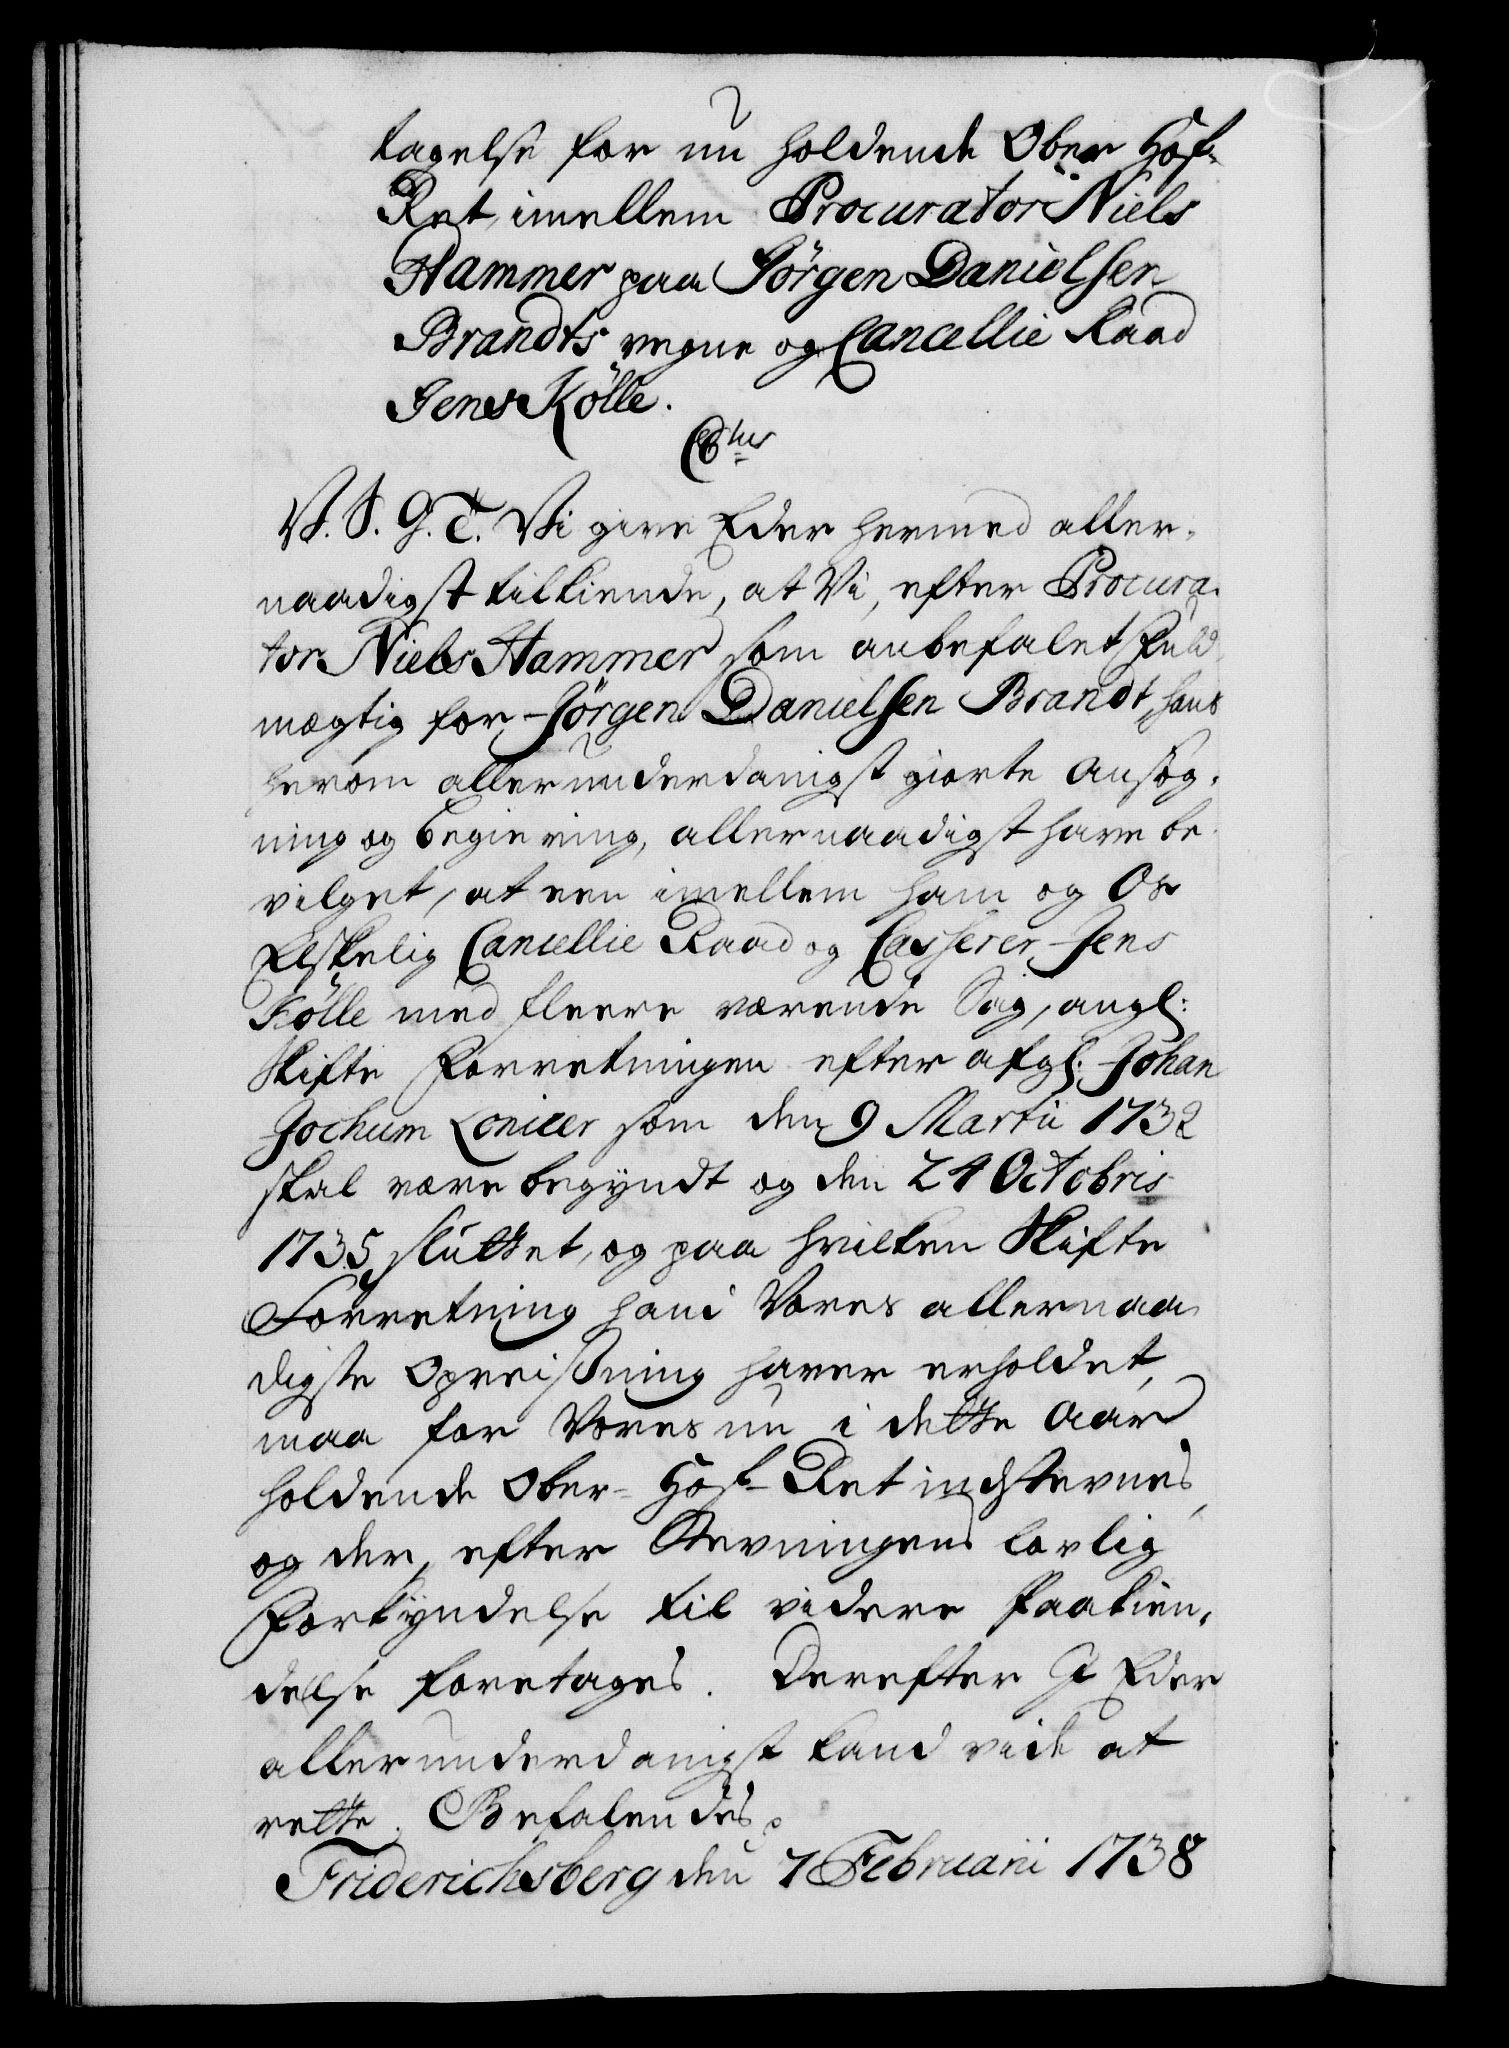 tagelse for nu holdende Ober Hof-
Ret, imellem Procurator Niels
Hammer paa Jörgen Danielsen
Brandts vegne og Cancellie Raad
Jens Kölle.
V. S. G. T. Vi give Eder hermed aller-
naadigst tilkiende, at Vi, efter Procura-
tor Niels Hammer som anbefalet Fuld
mægtig for Jörgen Danielsen Brandt, hans
herom allerunderdanigst giorte Ansøg-
ning og begiering, allernaadigst have be-
vilget, at een imellem ham og Os
Elskelig Cancellie Raad og Casserer Jens
Kölle med fleere værende Sag, angl:
Skifte Forretningen efter afgl: Johan
Jochum Lonicer som den 9 Martii 1732
skal være begyndt og den 24 Octobris
1735 sluttet, og paa hvilken Skifte
Forretning hand Vores allernaa
digste Opreisning haver erholdet,
maa for Vores nu i dette Aar
holdende Ober-Hof-Ret indstevnes,
og der, efter Stevningens lovlig
Forkyndelse til videre Paakien-
delse foretages. Derefter I Eder
allerunderdanigst kand vide at
rette. Befalendes
Friderichsberg den 7 Februarii 1738